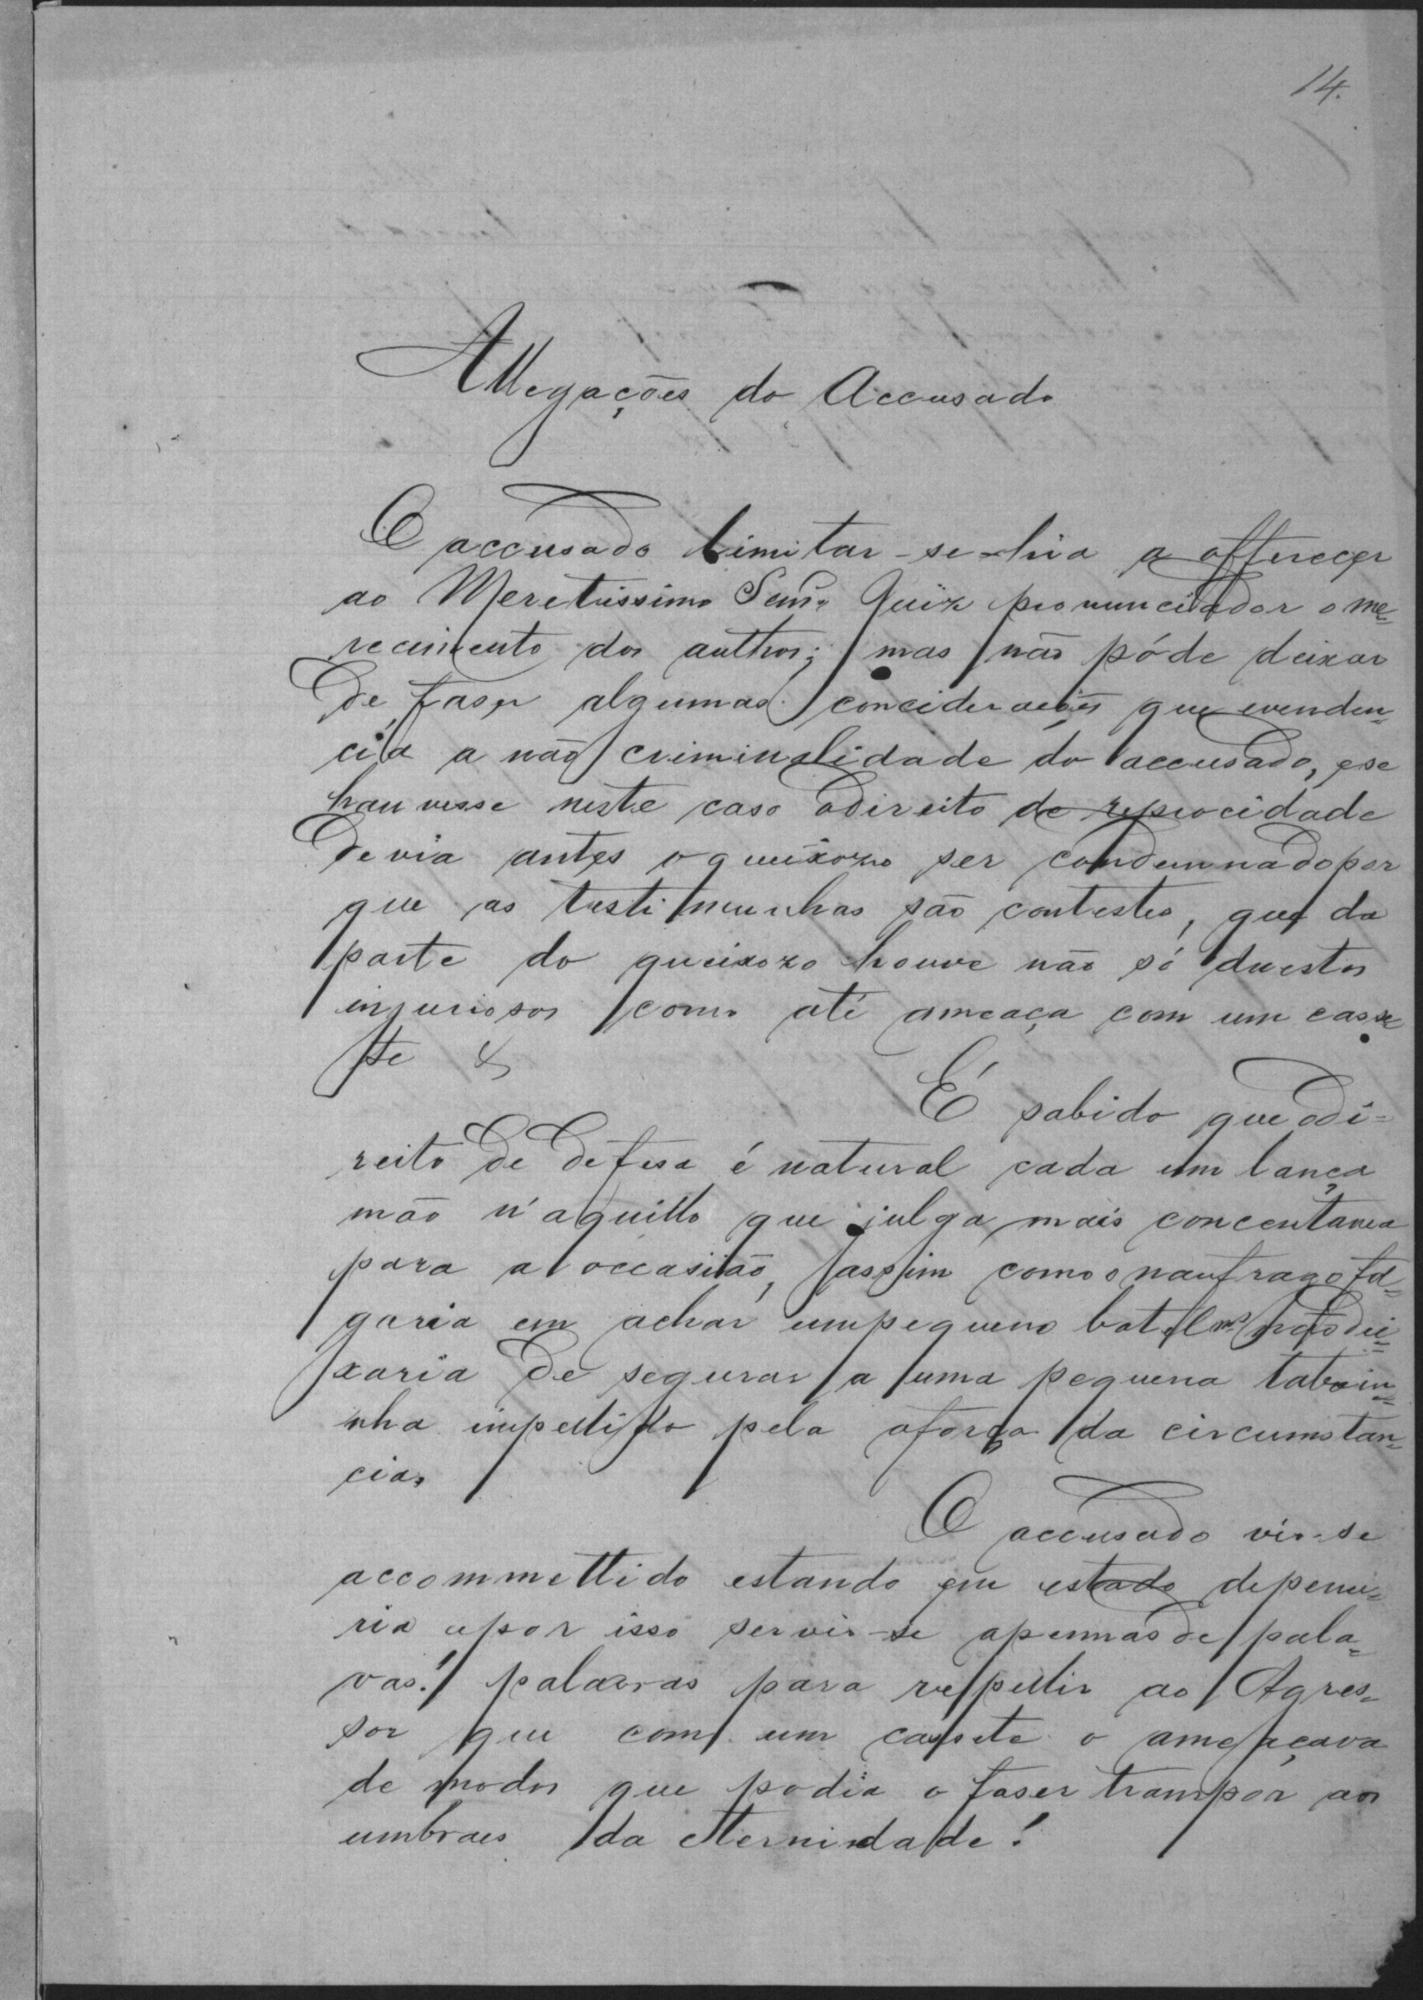 14.
Allegações do Accusado
O accusado limitar-se-hia a offerecer
ao Meretissimo Senr. Juiz pronunciador o me=
recimento dos authos; mas não póde deixar
de faser algumas conciderações que eviden=
cia a não criminalidade do accusado, e se
houvesse neste caso o direito de reprocidade
devia antes o queixozo ser condemnado por
que as testimunhas são contestes, que da
parte do queixozo houve não só duestos
injuriosos como até ameaça com um casse
te &
É sabido que o di=
reito de defesa é natural cada um lança
mão n'aquillo que julga mais concentanea
para a occasião, assim como o naufrago fol=
garia em achar um pequeno batel mas não dei=
xaria de segurar a uma pequena taboin=
nha impellido pela a força da circumstan=
cia.
O accusado vio-se
accommettido estando em estado de penu=
ria e por isso servio-se apennas de pala=
vas! palavras para repellir ao Agres=
sor que com um cassete o ameaçava
de modos que podia o faser transpor aos
umbraes da eternindade!